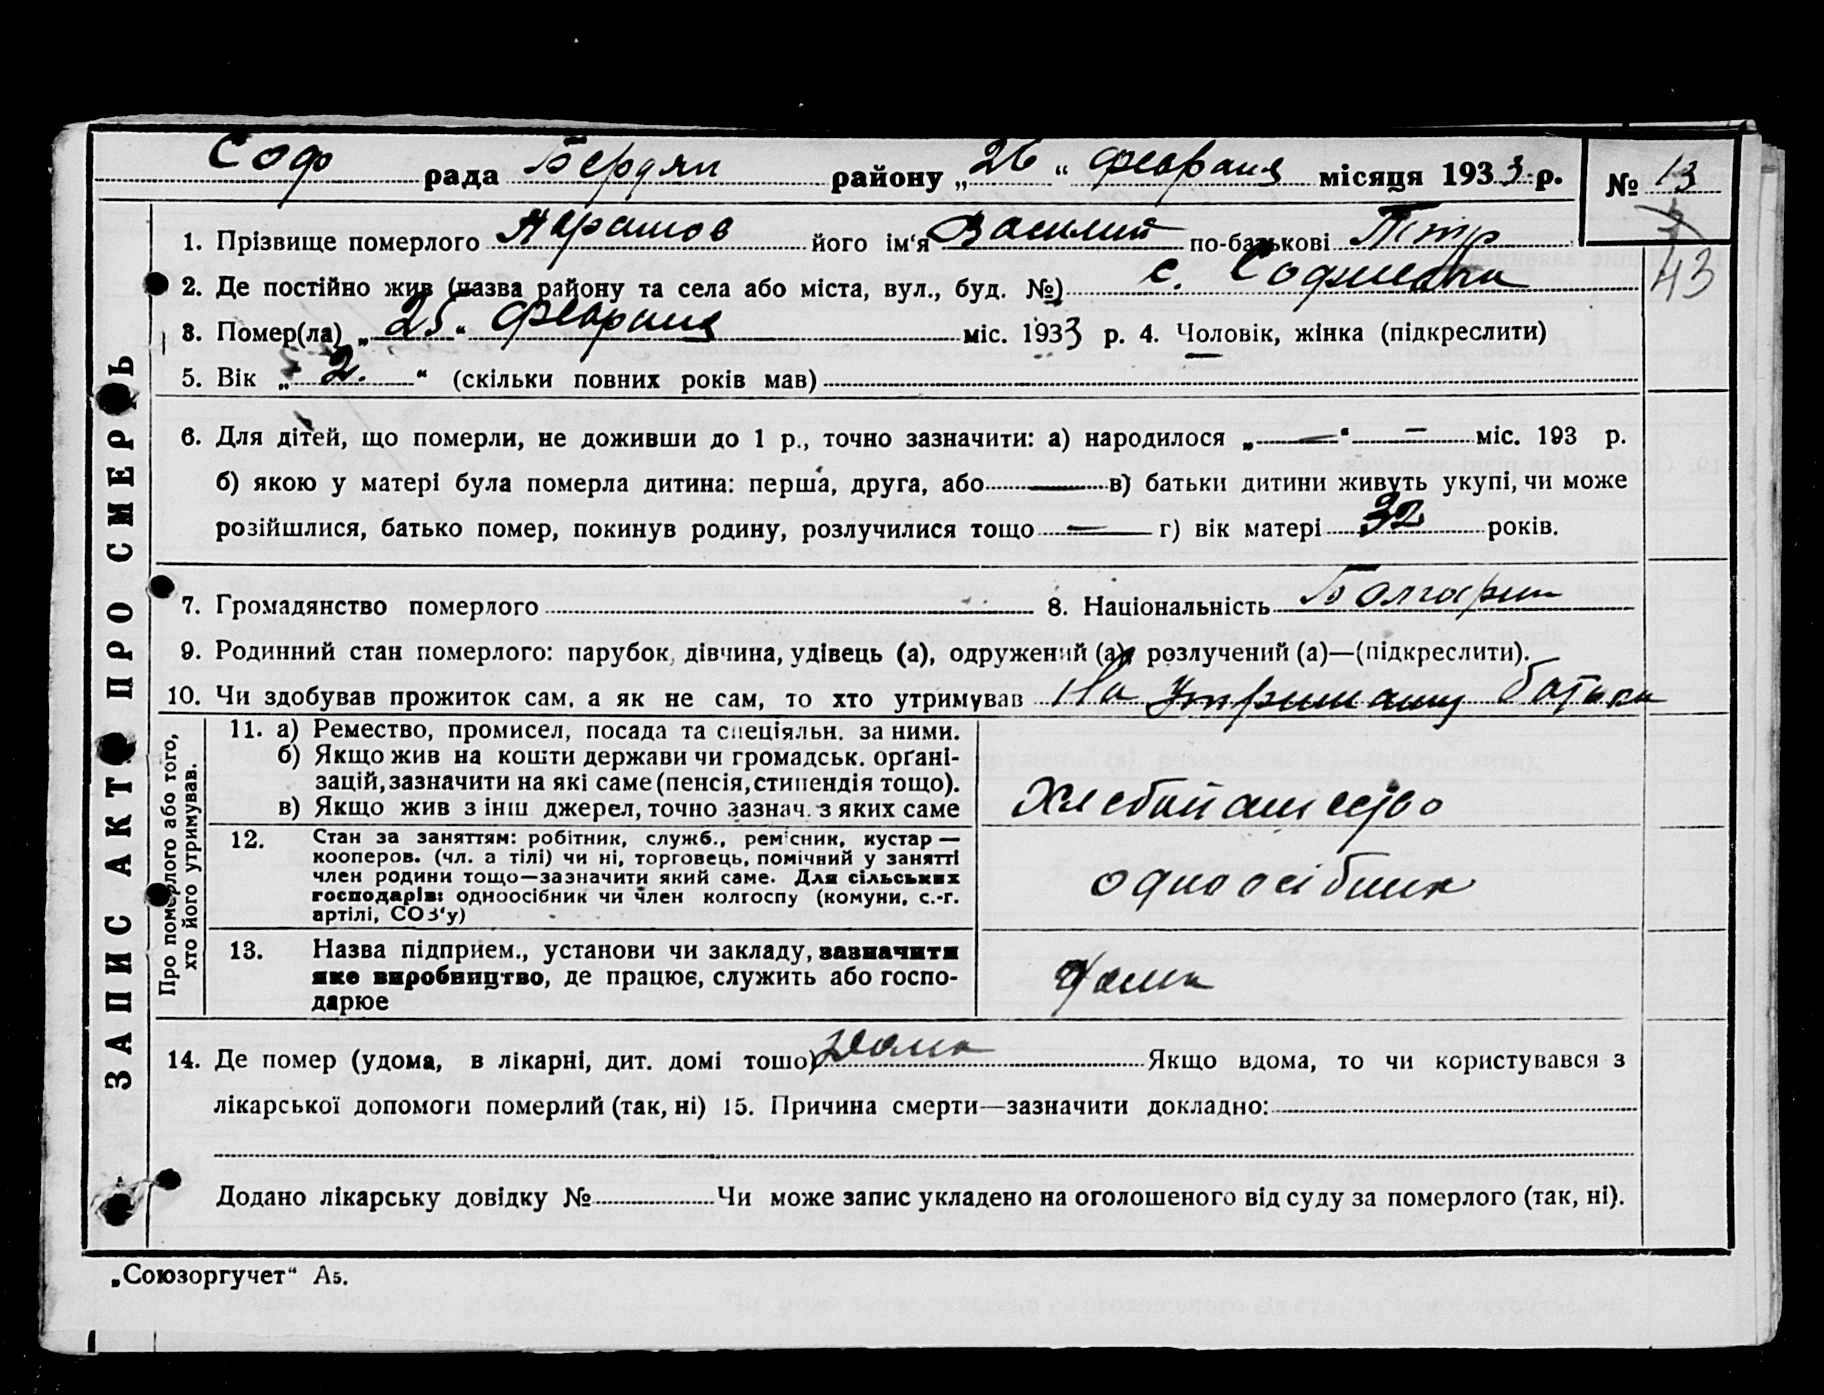 Соф рада Бердян району „26“ февраля місяця 1933 р. № 13
1. Прізвище померлого його ім'я Василий по-батькові Петр
43
2. Де постійно жив (назва району та села або міста, вул., буд. №) с. Софиевка
3. Помер(ла) „25“ февраля міс. 1933 р. 4. Чоловік, жінка (підкреслити)
5. Вік „2.“ (скільки повних років мав)
6. Для дітей, що померли, не доживши до 1 р., точно зазначити: а) народилося „—“ — міс. 193 р.
б) якою у матері була померла дитина: перша, друга, або — в) батьки дитини живуть укупі, чи може
розійшлися, батько помер, покинув родину, розлучилися тощо — г) вік матері 32 років.
7. Громадянство померлого 8. Національність Болгарин
9. Родинний стан померлого: парубок, дівчина, удівець (а), одружений (а), розлучений (а)—(підкреслити).
10. Чи здобував прожиток сам, а як не сам, то хто утримував На утриманну батька
ЗАПИС АКТ ПРО СМЕРТЬ
Про померлого або того,
хто його утримував.
11. а) Ремество, промисел, посада та спеціяльн. за ними.
б) Якщо жив на кошти держави чи громадськ. орґані-
зацій, зазначити на які саме (пенсія, стипендія тощо).
в) Якщо жив з інш джерел, точно зазнач. з яких саме
Хлебопашество
12. Стан за заняттям: робітник, служб., ремісник, кустар —
кооперов. (чл. а тілі) чи ні, торговець, помічний у занятті
член родини тощо—зазначити який саме. Для сільських
господарів: одноосібник чи член колгоспу (комуни, с.-г.
артілі, СОЗ'у)
одноосібник
13. Назва підприєм., установи чи закладу, зазначити
яке виробництво, де працює, служить або госпо-
дарює
Дома
14. Де помер (удома, в лікарні, дит. домі тошо) Дома Якщо вдома, то чи користувався з
лікарської допомоги померлий (так, ні) 15. Причина смерти—зазначити докладно:
Додано лікарську довідку № Чи може запис укладено на оголошеного від суду за померлого (так, ні).
„Союзоргучет“ А5.